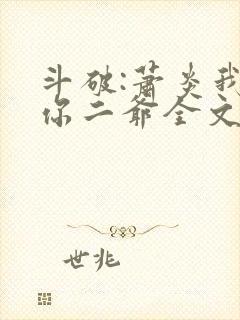 斗破:萧炎我
你二爷全文
世兆